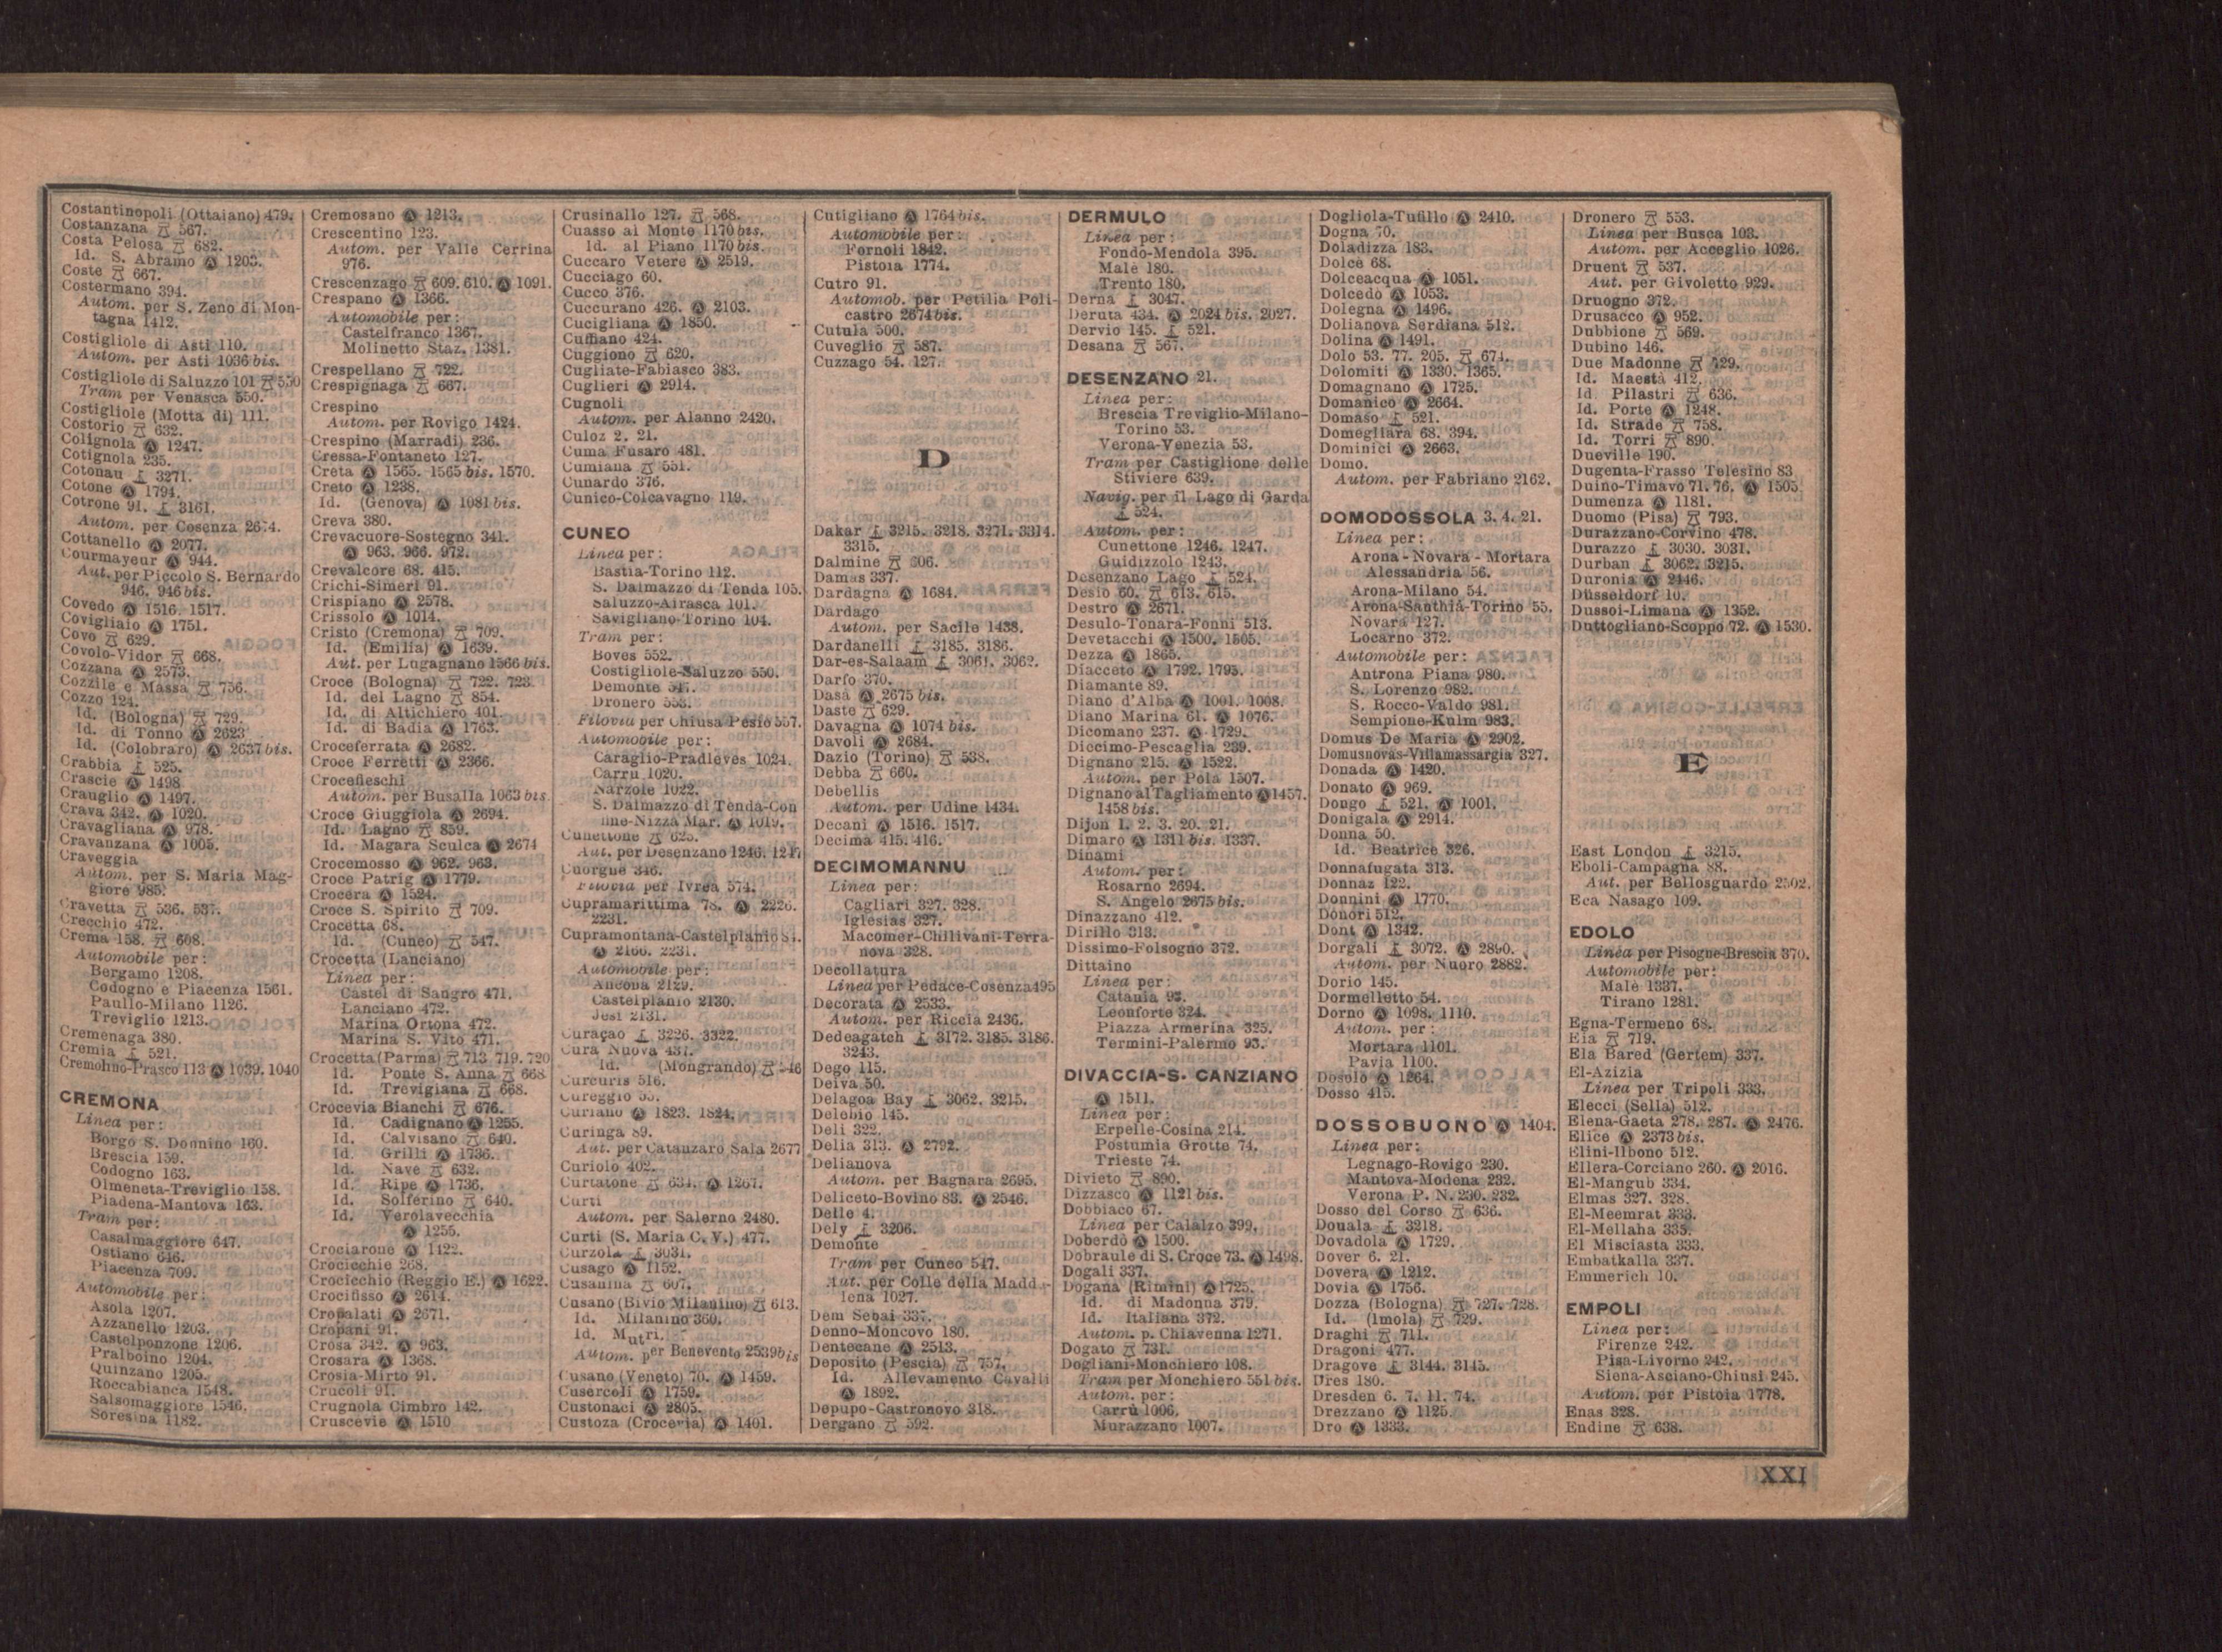 Costantinopoli (Ottaiano) 479.
Costanzana 567.
Costa Pelosa 682.
Id. S. Abramo Ⓐ 1203.
Coste 667.
Costermano 394.
Autom. per S. Zeno di Mon-
tagna 1412.
Costigliole di Asti 110.
Autom. per Asti 1036 bis.
Costigliole di Saluzzo 101 550
Tram per Venasca 550.
Costigliole (Motta di) 111.
Costorio 632.
Cotignola Ⓐ 1247.
Cotignola 235.
Cotonau 3271.
Cotone Ⓐ 1794.
Cotrone 91. 3161.
Autom. per Cosenza 2674.
Cottanello Ⓐ 2077.
Courmayeur Ⓐ 944.
Aut. per Piccolo S. Bernardo
946. 946 bis.
Covedo Ⓐ 1516. 1517.
Covigliaio Ⓐ 1751.
Covo 629.
Covolo-Vidor 668.
Cozzana Ⓐ 2573.
Cozzile e Massa 756.
Cozzo 124.
Id. (Bologna) 729.
Id. di Tonno Ⓐ 2623
Id. (Colobraro) Ⓐ 2637 bis.
Crabbia 525.
Crascie Ⓐ 1498
Crauglio Ⓐ 1497.
Crava 342. Ⓐ 1020.
Cravagliana Ⓐ 978.
Cravanzana Ⓐ 1005.
Craveggia
Autom. per S. Maria Mag-
giore 985.
Cravetta 536. 537.
Crecchio 472.
Crema 158. 608.
Automobile per:
Bergamo 1208.
Codogno e Piacenza 1561.
Paullo-Milano 1126.
Treviglio 1213.
Cremenaga 380.
Cremia 521.
Cremolino-Prasco 113 Ⓐ 1039. 1040
CREMONA
Linea per:
Borgo S. Donnino 160.
Brescia 159.
Codogno 163.
Olmeneta-Treviglio 158.
Piadena-Mantova 163.
Tram per:
Casalmaggiore 647.
Ostiano 646.
Piacenza 709.
Automobile per:
Asola 1207.
Azzanello 1203.
Castelponzone 1206.
Pralboino 1204.
Quinzano 1205.
Roccabianca 1548.
Salsomaggiore 1546.
Soresina 1182.
Cremosano Ⓐ 1213.
Crescentino 123.
Autom. per Valle Cerrina
976.
Crescenzago 609. 610. Ⓐ 1091.
Crespano Ⓐ 1366.
Automobile per:
Castelfranco 1367.
Molinetto Staz. 1381.
Crespellano 722.
Crespignaga 667.
Crespino
Autom. per Rovigo 1424.
Crespino (Marradi) 236.
Cressa-Fontaneto 127.
Creta Ⓐ 1565. 1565 bis. 1570.
Creto Ⓐ 1238.
Id. (Genova) Ⓐ 1081 bis.
Creva 380.
Crevacuore-Sostegno 341.
Ⓐ 963. 966. 972.
Crevalcore 68. 415.
Crichi-Simeri 91.
Crispiano Ⓐ 2578.
Crissolo Ⓐ 1014.
Cristo (Cremona) 709.
Id. (Emilia) Ⓐ 1639.
Aut. per Lugagnano 1566 bis.
Croce (Bologna) 722. 723.
Id. del Lagno 854.
Id. di Altichiero 401.
Id. di Badia Ⓐ 1763.
Croceferrata Ⓐ 2682.
Croce Ferretti Ⓐ 2366.
Crocefieschi
Autom. per Busalla 1063 bis
Croce Giuggiola Ⓐ 2694.
Id. Lagno 859.
Id. Magara Sculca Ⓐ 2674
Crocemosso Ⓐ 962. 963.
Croce Patrig Ⓐ 1779.
Crocera Ⓐ 1524.
Croce S. Spirito 709.
Crocetta 68.
Id. (Cuneo) 547.
Crocetta (Lanciano)
Linea per:
Castel di Sangro 471.
Lanciano 472.
Marina Ortona 472.
Marina S. Vito 471.
Crocetta (Parma) 713. 719. 720
Id. Ponte S. Anna 668
Id. Trevigiana 668.
Crocevia Bianchi 676.
Id. Cadignano Ⓐ 1255.
Id. Calvisano 640.
Id. Grilli Ⓐ 1736.
Id. Nave 632.
Id. Ripe Ⓐ 1736.
Id. Solferino 640.
Id. Verolavecchia
Ⓐ 1255.
Crociarone Ⓐ 1422.
Crocicchie 268.
Crocicchio (Reggio E.) Ⓐ 1622.
Crocifisso Ⓐ 2614.
Cropalati Ⓐ 2671.
Cropani 91.
Crosa 342. Ⓐ 963.
Crosara Ⓐ 1368.
Crosia-Mirto 91.
Crucoli 91.
Crugnola Cimbro 142.
Cruscevie Ⓐ 1510
Crusinallo 127. 568.
Cuasso al Monte 1170 bis.
Id. al Piano 1170 bis.
Cuccaro Vetere Ⓐ 2519.
Cucciago 60.
Cucco 376.
Cuccurano 426. Ⓐ 2103.
Cucigliana Ⓐ 1850.
Cuffiano 424.
Cuggiono 620.
Cugliate-Fabiasco 383.
Cuglieri Ⓐ 2914.
Cugnoli
Autom. per Alanno 2420.
Culoz 2. 21.
Cuma Fusaro 481.
Cumiana 551.
Cunardo 376.
Cunico-Colcavagno 119.
CUNEO
Linea per:
Bastia-Torino 112.
S. Dalmazzo di Tenda 105.
Saluzzo-Airasca 101.
Savigliano-Torino 104.
Tram per:
Boves 552.
Costigliole-Saluzzo 550.
Demonte 547.
Dronero 553.
Filovia per Chiusa Pesio 557.
Automobile per:
Caraglio-Pradleves 1024.
Carrù 1020.
Narzole 1022.
S. Dalmazzo di Tenda-Con
fine-Nizza Mar. Ⓐ 1019.
Cunettone 625.
Aut. per Desenzano 1246. 1247
Cuorgnè 346.
Filovia per Ivrea 574.
Cupramarittima 78. Ⓐ 2226.
2231.
Cupramontana-Castelplanio
Ⓐ 2166. 2231.
Automobile per:
Ancona 2129.
Castelplanio 2130.
Jesi 2131.
Curaçao 3226. 3322.
Cura Nuova 431.
Id. (Mongrando)
Curcuris 516.
Cureggio 55.
Curiano Ⓐ 1823. 1824.
Curinga 89.
Aut. per Catanzaro Sala 2677
Curiolo 402.
Curtatone 634. Ⓐ 1267.
Curti
Autom. per Salerno 2480.
Curti (S. Maria C. V.) 477.
Curzola 3031.
Cusago Ⓐ 1152.
Cusanina 607.
Cusano (Bivio Milanino) 613.
Id. Milanino 360.
Id. Mutri.
Autom. per Benevento 2539 bis
Cusano (Veneto) 70. Ⓐ 1459.
Cusercoli Ⓐ 1759.
Custonaci Ⓐ 2805.
Custoza (Crocevia) Ⓐ 1401.
Cutigliano Ⓐ 1764 bis.
Automobile per:
Fornoli 1842.
Pistoia 1774.
Cutro 91.
Automob. per Petilia Poli-
castro 2674 bis.
Cutula 500.
Cuveglio 587.
Cuzzago 54. 127.
D
Dakar 3215. 3218. 3271. 3314.
3315.
Dalmine 606.
Damas 337.
Dardagna Ⓐ 1684.
Dardago
Autom. per Sacile 1438.
Dardanelli 3185. 3186.
Dar-es-Salaam 3061. 3062.
Darfo 370.
Dasà Ⓐ 2675 bis.
Daste 629.
Davagna Ⓐ 1074 bis.
Davoli Ⓐ 2684.
Dazio (Torino) 538.
Debba 660.
Debellis
Autom. per Udine 1434.
Decani Ⓐ 1516. 1517.
Decima 415. 416.
DECIMOMANNU
Linea per:
Cagliari 327. 328.
Iglesias 327.
Macomer-Chilivani-Terra-
nova 328.
Decollatura
Linea per Pedace-Cosenza 495
Decorata Ⓐ 2533.
Autom. per Riccia 2436.
Dedeagatch 3172. 3185. 3186.
3243.
Dego 115.
Deiva 50.
Delagoa Bay 3062. 3215.
Delebio 145.
Deli 322.
Delia 313. Ⓐ 2792.
Delianova
Autom. per Bagnara 2695.
Deliceto-Bovino 83. Ⓐ 2546.
Delle 4.
Dely 3206.
Demonte
Tram per Cuneo 547.
Aut. per Colle della Madd.-
lena 1027.
Dem Sebai 337.
Denno-Moncovo 180.
Dentecane Ⓐ 2513.
Deposito (Pescia) 757.
Id. Allevamento Cavalli
Ⓐ 1892.
Depupo-Castronovo 318.
Dergano 592.
DERMULO
Linea per:
Fondo-Mendola 395.
Malè 180.
Trento 180.
Derna 3047.
Deruta 434. Ⓐ 2024 bis. 2027.
Dervio 145. 521.
Desana 567.
DESENZANO 21.
Linea per:
Brescia Treviglio-Milano-
Torino 53.
Verona-Venezia 53.
Tram per Castiglione delle
Stiviere 639.
Navig. per il Lago di Garda
524.
Autom. per:
Cunettone 1246. 1247.
Guidizzolo 1243.
Desenzano Lago 524.
Desio 60. 613. 615.
Destro Ⓐ 2671.
Desulo-Tonara-Fonni 513.
Devetacchi Ⓐ 1500. 1505.
Dezza Ⓐ 1865.
Diacceto Ⓐ 1792. 1795.
Diamante 89.
Diano d'Alba Ⓐ 1001. 1008.
Diano Marina 61. Ⓐ 1076.
Dicomano 237. Ⓐ 1729.
Diecimo-Pescaglia 239.
Dignano 215. Ⓐ 1522.
Autom. per Pola 1507.
Dignano al Tagliamento Ⓐ 1457.
1458 bis.
Dijon 1. 2. 3. 20. 21.
Dimaro Ⓐ 1311 bis. 1337.
Dinami
Autom. per:
Rosarno 2694.
S. Angelo 2675 bis.
Dinazzano 412.
Dirillo 313.
Dissimo-Folsogno 372.
Dittaino
Linea per:
Catania 93.
Leonforte 324.
Piazza Armerina 325.
Termini-Palermo 93.
DIVACCIA-S. CANZIANO
Ⓐ 1511.
Linea per:
Erpelle-Cosina 214.
Postumia Grotte 74.
Trieste 74.
Divieto 890.
Dizzasco Ⓐ 1121 bis.
Dobbiaco 67.
Linea per Calalzo 399.
Doberdò Ⓐ 1500.
Dobraule di S. Croce 73. Ⓐ 1498.
Dogali 337.
Dogana (Rimini) Ⓐ 1725.
Id. di Madonna 379.
Id. Italiana 372.
Autom. p. Chiavenna 1271.
Dogato 731.
Dogliani-Monchiero 108.
Tram per Monchiero 551 bis.
Autom. per:
Carrù 1006.
Murazzano 1007.
Dogliola-Tufillo Ⓐ 2410.
Dogna 70.
Doladizza 183.
Dolcè 68.
Dolceacqua Ⓐ 1051.
Dolcedo Ⓐ 1053.
Dolegna Ⓐ 1496.
Dolianova Serdiana 512.
Dolina Ⓐ 1491.
Dolo 53. 77. 205. 674.
Dolomiti Ⓐ 1330. 1365.
Domagnano Ⓐ 1725.
Domanico Ⓐ 2664.
Domaso 521.
Domegliara 68. 394.
Dominici Ⓐ 2663.
Domo.
Autom. per Fabriano 2162.
DOMODOSSOLA 3. 4. 21.
Linea per:
Arona-Novara-Mortara
Alessandria 56.
Arona-Milano 54.
Arona-Santhià-Torino 55.
Novara 127.
Locarno 372.
Automobile per:
Antrona Piana 980.
S. Lorenzo 982.
S. Rocco-Valdo 981.
Sempione-Kulm 983.
Domus De Maria Ⓐ 2902.
Domusnovas-Villamassargia 327.
Donada Ⓐ 1420.
Donato Ⓐ 969.
Dongo 521. Ⓐ 1001.
Donigala Ⓐ 2914.
Donna 50.
Id. Beatrice 326.
Donnafugata 313.
Donnaz 122.
Donnini Ⓐ 1770.
Donori 512.
Dont Ⓐ 1342.
Dorgali 3072. Ⓐ 2890.
Autom. per Nuoro 2882.
Dorio 145.
Dormelletto 54.
Dorno Ⓐ 1098. 1110.
Autom. per:
Mortara 1101.
Pavia 1100.
Dosolo Ⓐ 1264.
Dosso 415.
DOSSOBUONO Ⓐ 1404.
Linea per:
Legnago-Rovigo 230.
Mantova-Modena 232.
Verona P. N. 230. 232.
Dosso del Corso 636.
Douala 3218.
Dovadola Ⓐ 1729.
Dover 6. 21.
Dovera Ⓐ 1212.
Dovia Ⓐ 1756.
Dozza (Bologna) 727. 728.
Id. (Imola) 729.
Draghi 711.
Dragoni 477.
Dragove 3144. 3145.
Dres 180.
Dresden 6. 7. 11. 74.
Drezzano Ⓐ 1125.
Dro Ⓐ 1333.
Dronero 553.
Linea per Busca 103.
Autom. per Acceglio 1026.
Druent 537.
Aut. per Givoletto 929.
Druogno 372.
Drusacco Ⓐ 952.
Dubbione 569.
Dubino 146.
Due Madonne 729.
Id. Maestà 412.
Id. Pilastri 636.
Id. Porte Ⓐ 1248.
Id. Strade 758.
Id. Torri 890.
Dueville 190.
Dugenta-Frasso Telesino 83
Duino-Timavo 71. 76. Ⓐ 1505.
Dumenza Ⓐ 1181.
Duomo (Pisa) 793.
Durazzano-Corvino 478.
Durazzo 3030. 3031.
Durban 3062. 3215.
Duronia Ⓐ 2446.
Düsseldorf 10.
Dussoi-Limana Ⓐ 1352.
Duttogliano-Scoppo 72. Ⓐ 1530.
E
East London 3215.
Eboli-Campagna 88.
Aut. per Bellosguardo 2502.
Eca Nasago 109.
EDOLO
Linea per Pisogne-Brescia 370.
Automobile per:
Malè 1337.
Tirano 1281.
Egna-Termeno 68.
Eia 719.
Ela Bared (Gertem) 337.
El-Azizia
Linea per Tripoli 333.
Elecci (Sella) 512.
Elena-Gaeta 278. 287. Ⓐ 2476.
Elice Ⓐ 2373 bis.
Elini-Ilbono 512.
Ellera-Corciano 260. Ⓐ 2016.
El-Mangub 334.
Elmas 327. 328.
El-Meemrat 333.
El-Mellaha 335.
El Misciasta 333.
Embatkalla 337.
Emmerich 10.
EMPOLI
Linea per:
Firenze 242.
Pisa-Livorno 242.
Siena-Asciano-Chiusi 245.
Autom. per Pistoia 1778.
Enas 328.
Endine 638.
XXI